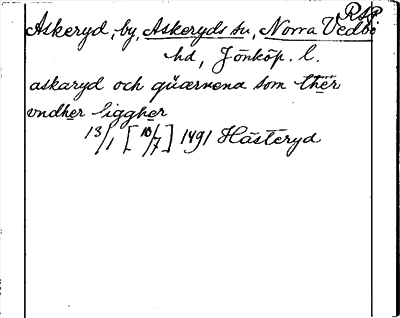 Rsp
Askeryd, by, Askeryds sn, Norra Vedbo
hd, Jönköp. l.
askaryd och quærnena som thēr
vndher liggher
13/1 [10/7] 1491 Hästeryd